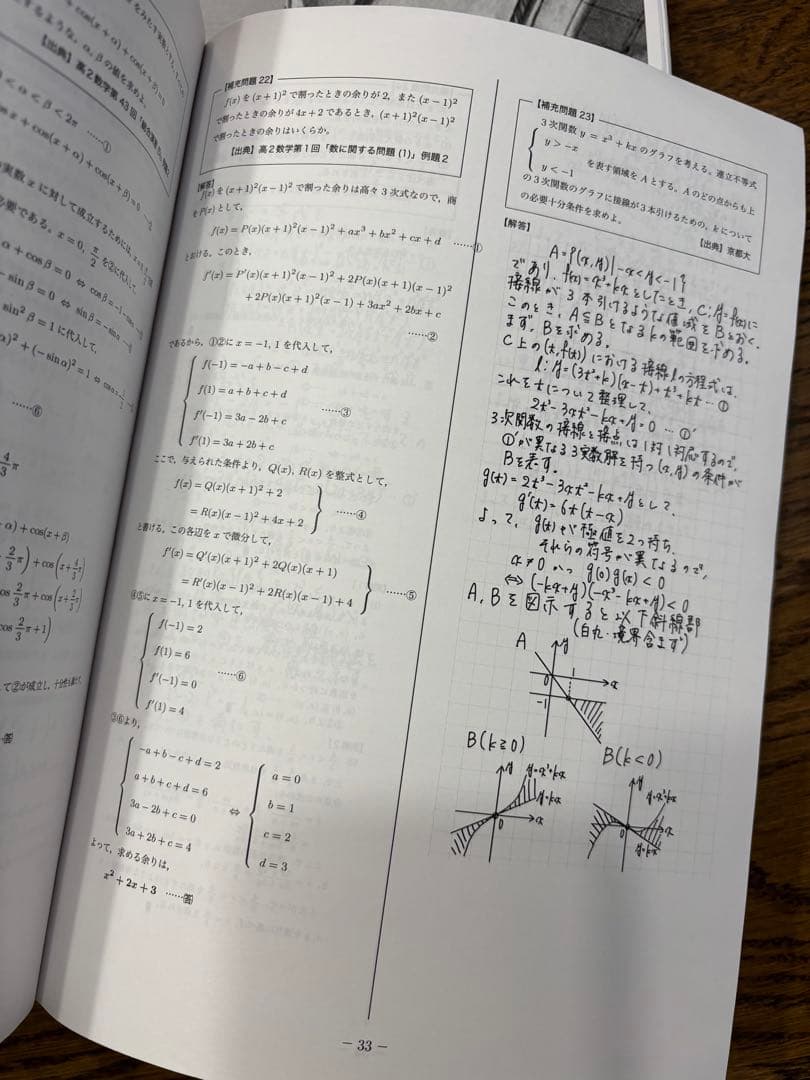 をみたす実数
するような、α, βの組を求めよ。
【出典】高2数学第43回
< α < β < 2π ……①
cos x + cos(x + α) + cos(x + β) = 0
の実数 x に対して成立するためには、
必要である。x = 0, π/2 を②に代入して
α + cos β = 0 ⇔ cos β = −1 − cos α
− sin β = 0 ⇔ sin β = − sin α
sin² β = 1 に代入して、
α)² + (− sin α)² = 1
……⑥
4/3 π
+ α) + cos(x + β)
2/3 π) + cos(x + 4/3 π)
cos 2/3 π + cos
cos 2/3 π + 1)
【補充問題 22】
f(x) を (x + 1)² で割ったときの余りが 2，また (x − 1)²
で割ったときの余りが 4x + 2 であるとき，(x + 1)²(x − 1)²
で割ったときの余りはいくらか。
【出典】高2数学第1回「数に関する問題 (1)」例題2
【解答】
f(x) を (x + 1)²(x − 1)² で割った余りは高々 3 次式なので，商
を P(x) として，
f(x) = P(x)(x + 1)²(x − 1)² + ax³ + bx² + cx + d ……①
とおける。このとき，
f′(x) = P′(x)(x + 1)²(x − 1)² + 2P(x)(x + 1)(x − 1)²
+ 2P(x)(x + 1)²(x − 1) + 3ax² + 2bx + c
……②
であるから，①②に x = −1, 1 を代入して，
f(−1) = −a + b − c + d
f(1) = a + b + c + d
……③
f′(−1) = 3a − 2b + c
f′(1) = 3a + 2b + c
ここで，与えられた条件より，Q(x), R(x) を整式として，
f(x) = Q(x)(x + 1)² + 2
= R(x)(x − 1)² + 4x + 2
……④
と書ける。この各辺を x で微分して，
f′(x) = Q′(x)(x + 1)² + 2Q(x)(x + 1)
= R′(x)(x − 1)² + 2R(x)(x − 1) + 4
……⑤
④⑤に x = −1, 1 を代入して，
f(−1) = 2
f(1) = 6
……⑥
f′(−1) = 0
f′(1) = 4
③⑥より，
−a + b − c + d = 2
a + b + c + d = 6
3a − 2b + c = 0
3a + 2b + c = 4
⇔
a = 0
b = 1
c = 2
d = 3
よって，求める余りは，
x² + 2x + 3 ……答
【補充問題 23】
3 次関数 y = x³ + kx のグラフを考える。連立不等式
y > −x
y < −1
を表す領域を A とする。A のどの点からも上
の 3 次関数のグラフに接線が 3 本引けるための，k について
の必要十分条件を求めよ。
【出典】京都大
【解答】
A = {(x, y) | −x < y < −1}
であり、f(x) = x³ + kx としたとき、C: y = f(x) に
接線が 3 本引けるような領域を B とおく。
このとき、A ⊆ B となる k の範囲を求める。
まず、B を求める。
C 上の (t, f(t)) における接線 l の方程式は、
l: y = (3t² + k)(x − t) + t³ + kt … ①
これを t について整理して、
2t³ − 3xt² − kx + y = 0 … ①′
3次関数の接線と接点は 1対1対応するので、
①′が異なる 3 実数解を持つ (x, y) の条件が
B を表す。
g(t) = 2t³ − 3xt² − kx + y として、
g′(t) = 6t(t − x)
よって、g(t) が極値を 2 つ持ち、
それらの符号が異なるので、
x ≠ 0 かつ g(0)g(x) < 0
⇔ (−kx + y)(−x³ − kx + y) < 0
A, B を図示すると以下斜線部
(白丸・境界含まず)
A
y
1
0
x
−1
B (k ≥ 0)
y
y = x³ + kx
y = kx
0
x
B (k < 0)
y
y = x³ + kx
x
0
y = kx
− 33 −